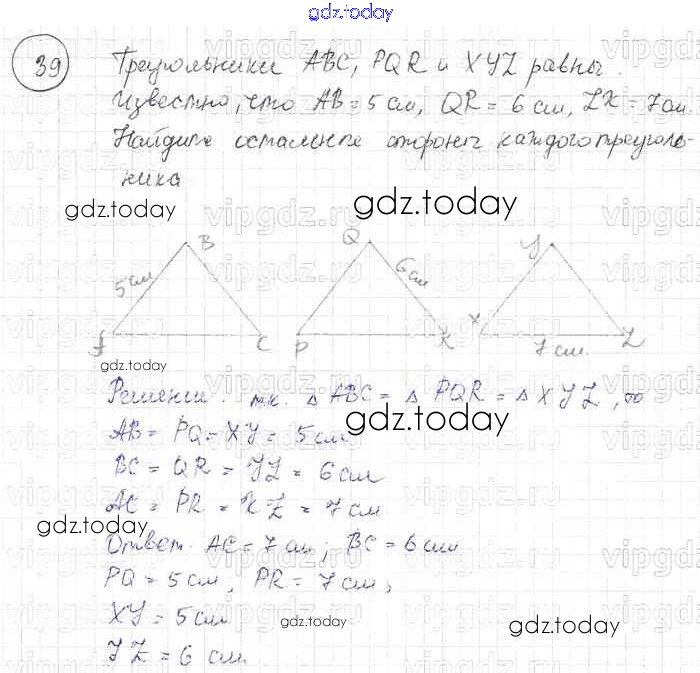 gdz.today
39
Треугольники ABC, PQR и XYZ равны.
Известно, что AB = 5 см, QR = 6 см, ZX = 7 см
Найдите остальные стороны каждого треуголь-
ника
gdz.today
gdz.today
B Q Y
5 см 6 см
A C P R X Z
7 см.
gdz.today
Решение: т.к. △ ABC = △ PQR = △ XYZ, то
gdz.today
AB = PQ = XY = 5 см
BC = QR = YZ = 6 см
AC = PR = XZ = 7 см
gdz.today
Ответ. AC = 7 см; BC = 6 см
PQ = 5 см, PR = 7 см,
XY = 5 см
gdz.today
gdz.today
YZ = 6 см.